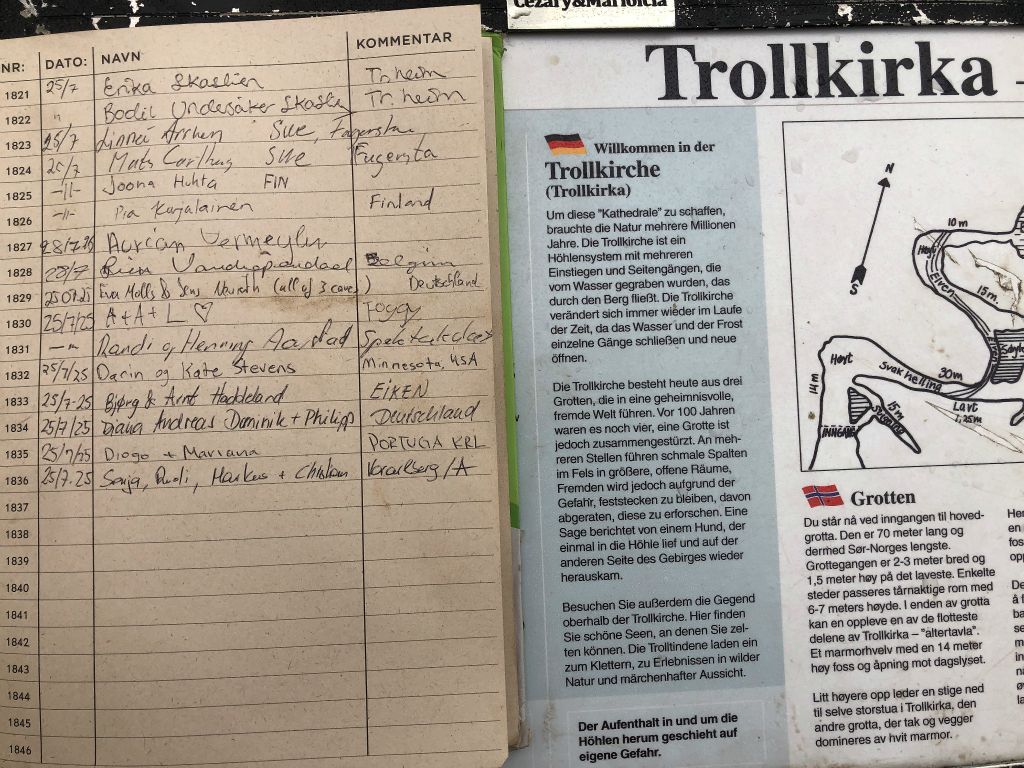 Cezary&Mariolcia
NR: DATO: NAVN KOMMENTAR
1821 25/7 Erika Skaslien Tr.heim
1822 " Bodil Undesåker Skaslien Tr.heim
1823 25/7 Linnea Swe, Fagersta
1824 25/7 Mats Swe Fagersta
1825 -11- Joona Huhta FIN
1826 -11- Pia Karjalainen Finland
1827 Adrian Vermeylen
1828 Belgium
1829 25 07.25 Eva Molls & Jens (all of 3 caves) Deutschland
1830 25/7/25 A + A + L ♡ Foggy
1831 -"- Randi og Henning Aarstad Spektakulært
1832 25/7/25 Darin og Kate Stevens Minnesota, USA
1833 25/7-25 Bjørg & Arnt Haddeland EIKEN
1834 25/7/25 Diana Andreas Dominik + Philipp Deutschland
1835 25/7/25 Diogo + Mariana PORTUGAL
1836 25/7.25 Sonja, Rudi, Markus + Christian Vorarlberg/A
1837
1838
1839
1840
1841
1842
1843
1844
1845
1846
Trollkirka -
Willkommen in der
Trollkirche
(Trollkirka)
Um diese "Kathedrale" zu schaffen,
brauchte die Natur mehrere Millionen
Jahre. Die Trollkirche ist ein
Höhlensystem mit mehreren
Einstiegen und Seitengängen, die
vom Wasser gegraben wurden, das
durch den Berg fließt. Die Trollkirche
verändert sich immer wieder im Laufe
der Zeit, da das Wasser und der Frost
einzelne Gänge schließen und neue
öffnen.
Die Trollkirche besteht heute aus drei
Grotten, die in eine geheimnisvolle,
fremde Welt führen. Vor 100 Jahren
waren es noch vier, eine Grotte ist
jedoch zusammengestürzt. An meh-
reren Stellen führen schmale Spalten
im Fels in größere, offene Räume,
Fremden wird jedoch aufgrund der
Gefahr, feststecken zu bleiben, davon
abgeraten, diese zu erforschen. Eine
Sage berichtet von einem Hund, der
einmal in die Höhle lief und auf der
anderen Seite des Gebirges wieder
herauskam.
Besuchen Sie außerdem die Gegend
oberhalb der Trollkirche. Hier finden
Sie schöne Seen, an denen Sie zel-
ten können. Die Trolltindene laden ein
zum Klettern, zu Erlebnissen in wilder
Natur und märchenhafter Aussicht.
Der Aufenthalt in und um die
Höhlen herum geschieht auf
eigene Gefahr.
N
S
10 m
Høyt
Elven
15m.
Høyt
Svak helling
30m
14m
15m
INNGANG
Lavt
1,25m
Grotten
Du står nå ved inngangen til hoved-
grotta. Den er 70 meter lang og
dermed Sør-Norges lengste.
Grottegangen er 2-3 meter bred og
1,5 meter høy på det laveste. Enkelte
steder passeres tårnaktige rom med
6-7 meters høyde. I enden av grotta
kan en oppleve en av de flotteste
delene av Trollkirka – "altertavla".
Et marmorhvelv med en 14 meter
høy foss og åpning mot dagslyset.
Litt høyere opp leder en stige ned
til selve storstua i Trollkirka, den
andre grotta, der tak og vegger
domineres av hvit marmor.